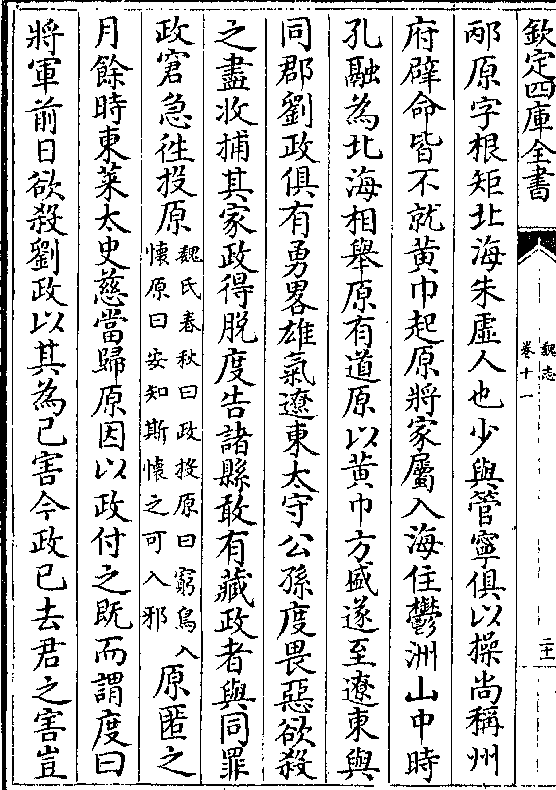 欽定四庫全書
魏志
卷十一
二十
邴原字根矩北海朱虛人也少與管寧俱以操尚稱州
府辟命皆不就黃巾起原將家屬入海住鬱洲山中時
孔融為北海相舉原有道原以黃巾方盛遂至遼東與
同郡劉政俱有勇畧雄氣遼東太守公孫度畏惡欲殺
之盡收捕其家政得脫度告諸縣敢有藏政者與同罪
政窘急往投原魏氏春秋曰政投原曰窮鳥入懷原曰安知斯懷之可入邪原匿之
月餘時東萊太史慈當歸原因以政付之既而謂度曰
將軍前日欲殺劉政以其為己害今政已去君之害豈